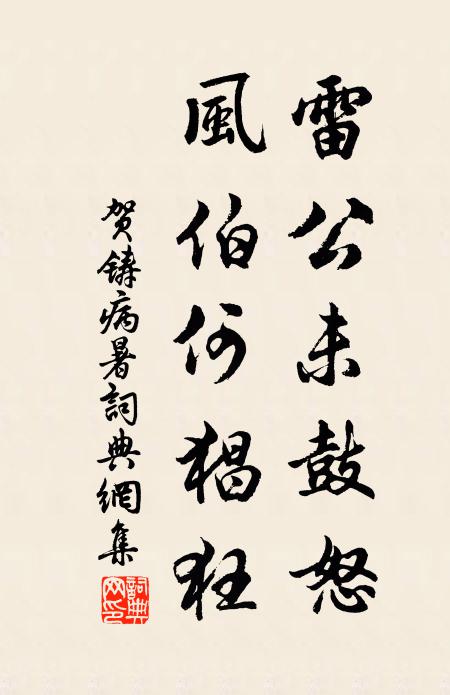 雷公未鼓怒
風伯何猖狂
賀鑄病暑詞典網集
詞典網印